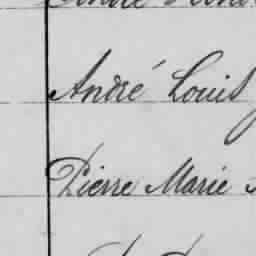 André Louis
Pierre Marie